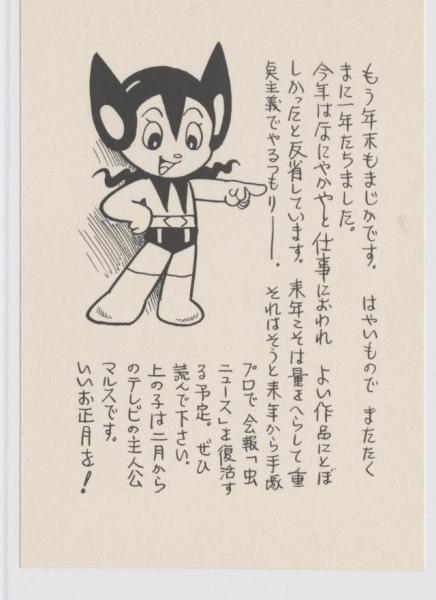 もう年末もまじかです。　はやいもので　またたく
まに一年たちました。
今年はなにやかやと仕事におわれ　よい作品にとぼ
しかったと反省しています。来年こそは量をへらして重
点主義でやるつもり──。　それはそうと来年から手塚
プロで会報「虫
ニュース」を復活す
る予定。ぜひ
読んで下さい。
上の子は二月から
のテレビの主人公
マルスです。
いいお正月を！